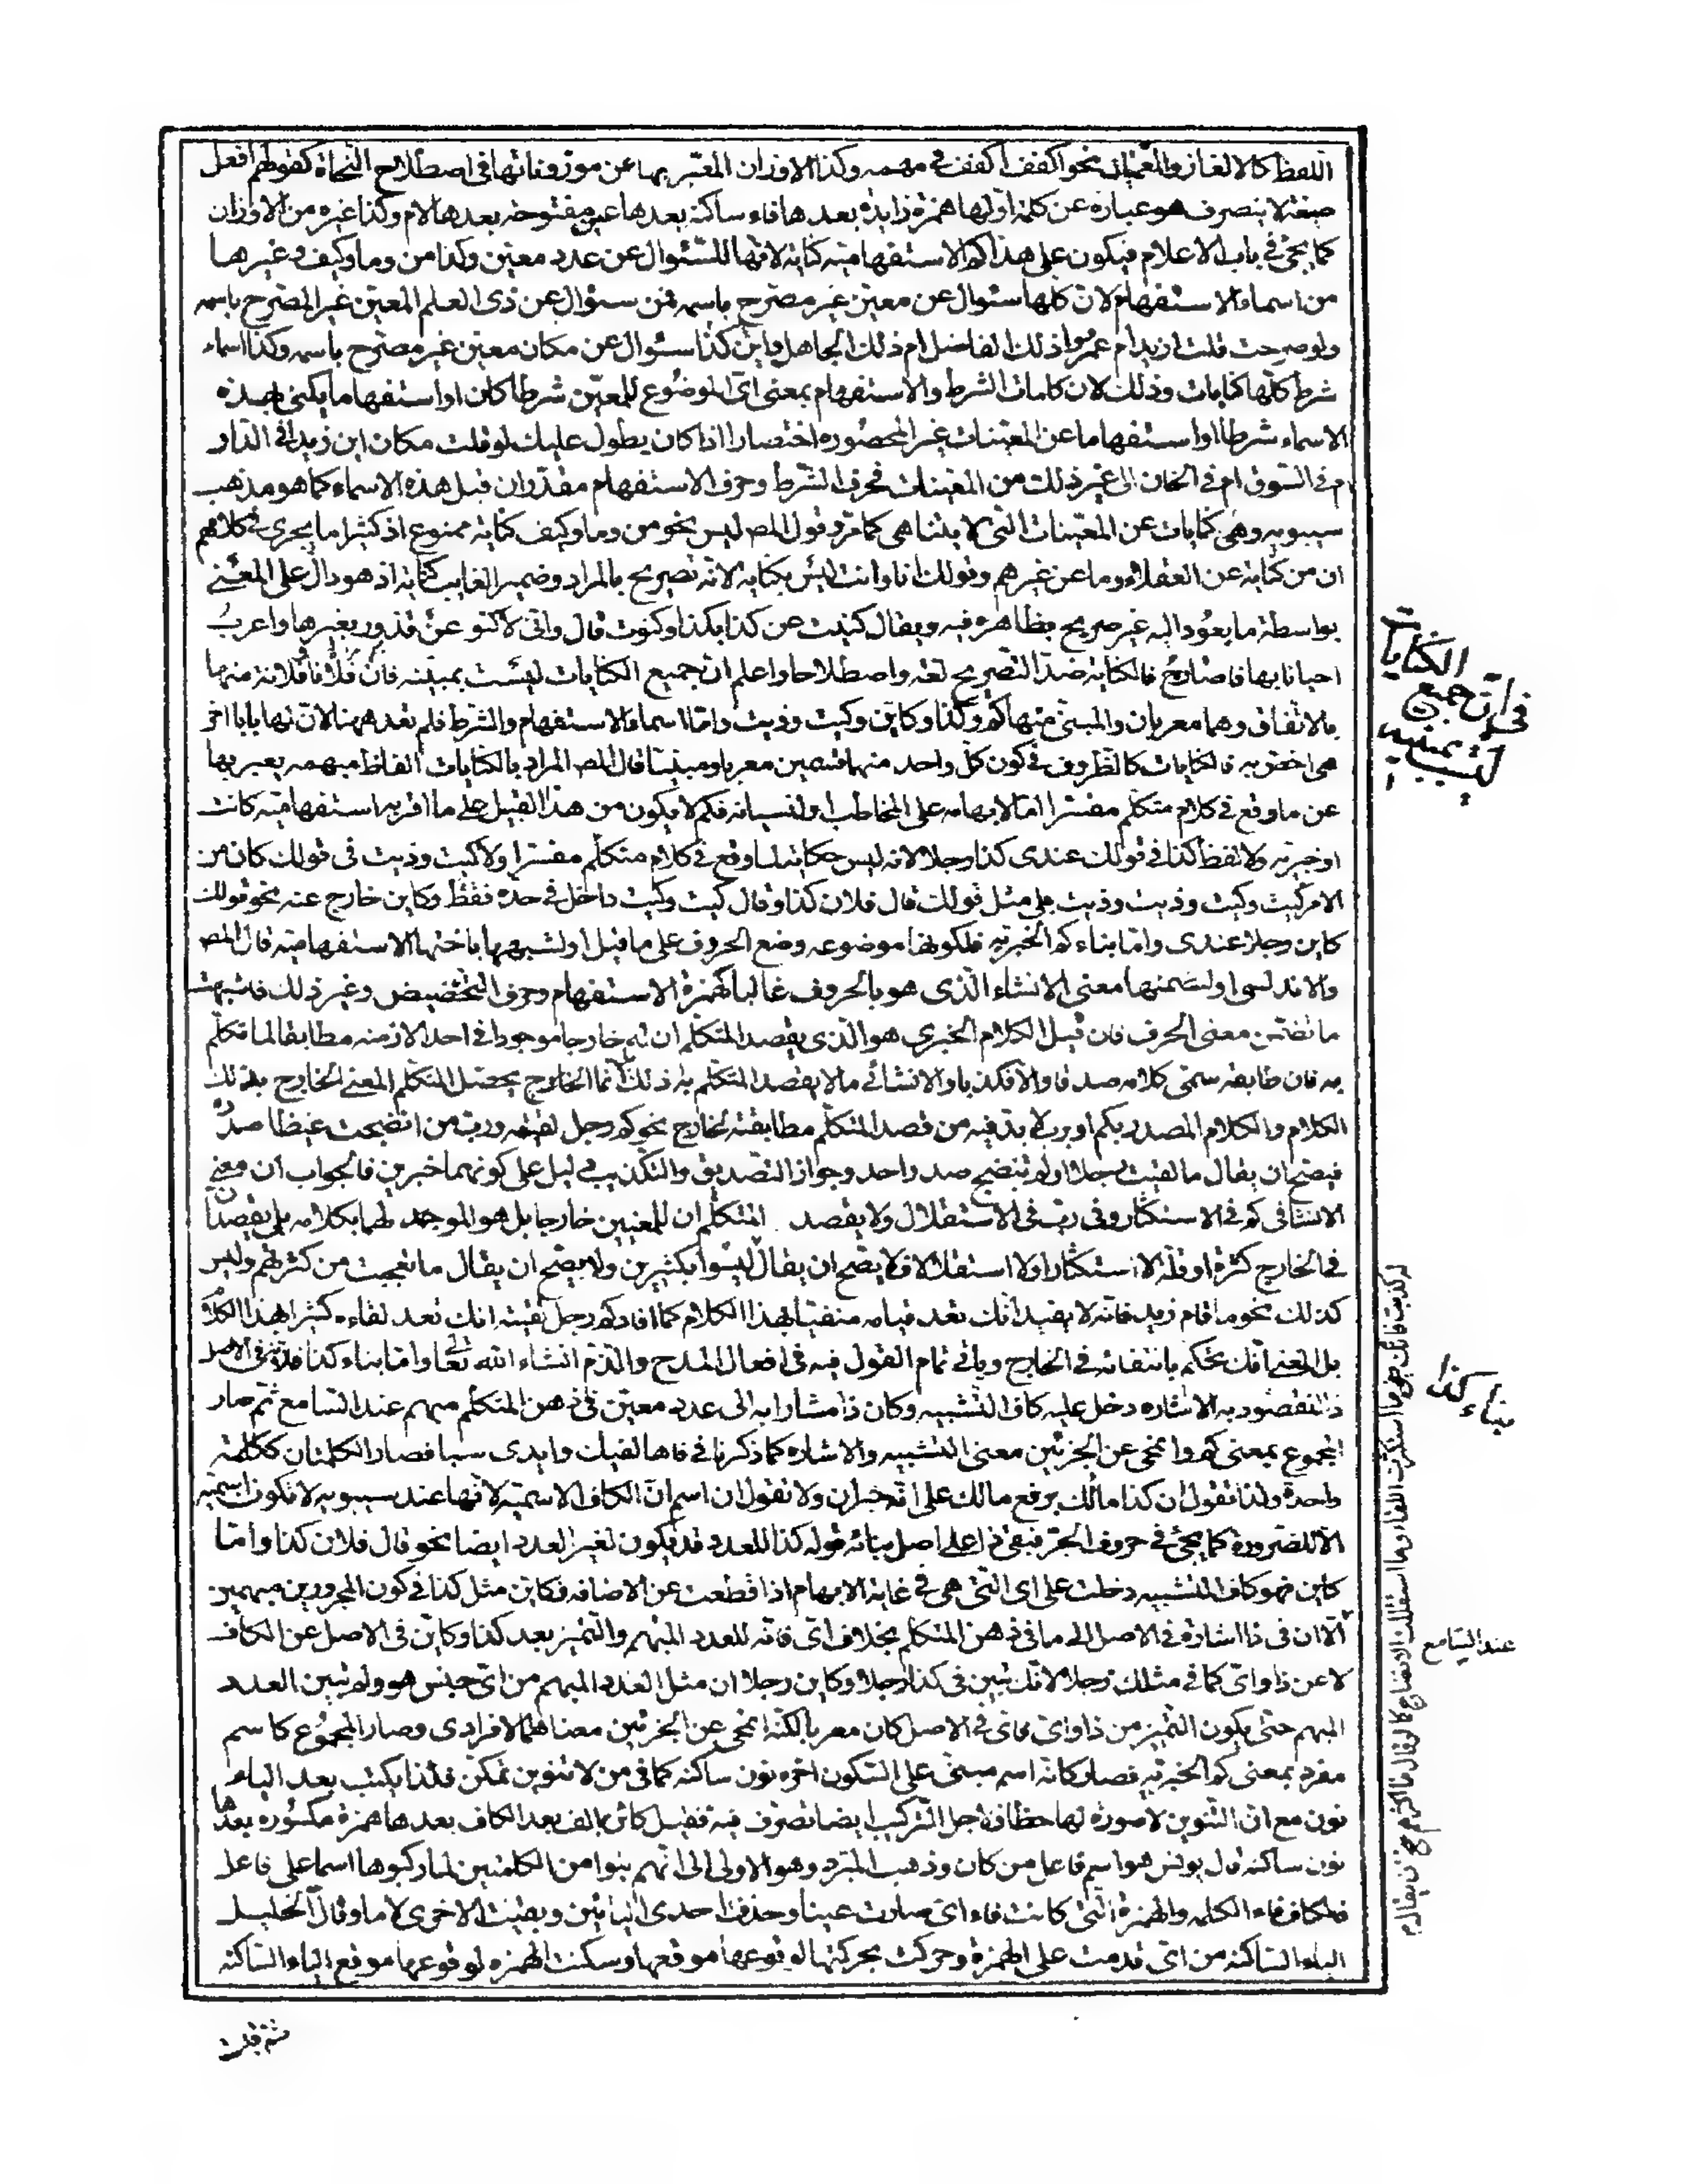 اللفظ كالالغاز والمعميات نحو اكفف اكفف في مهمه وكذا الاوزان المعبّر بها عن موزوناتها في اصطلاح النحاة كقولهم افعل
صفة لا ينصرف هو عبارة عن كلمة اولها همزة زايدة بعدها فاء ساكنة بعدها عين مفتوحة بعدها لام وكذا غيره من الاوزان
كما يجئ في باب الاعلام فيكون على هذا كم الاستفهامية كناية لانها للسّئوال عن عدد معيّن وكذا من وما وكيف وغيرها
من اسماء الاستفهام لان كلها سئوال عن معيّن غير مصرّح باسمه فمن سئوال عن ذى العلم المعيّن غير المصرّح باسمه
ولو صرحت قلت ازيد ام عمرو اذلك الفاضل ام ذلك الجاهل واين كذا سئوال عن مكان معين غير مصرّح باسمه وكذا اسماء
شرط كلها كنايات وذلك لان كلمات الشرط والاستفهام بمعنى اىّ الموضوع للمعيّن شرطا كان او استفهاما يكنى بهذه
الاسماء شرطا او استفهاما عن المعيّنات غير المحصوره اختصارا اذا كان يطول عليك لو قلت مكان اين زيد افى الدّار
ام فى السّوق ام فى الخان الى غير ذلك من المعينات فحرف الشرط وحرف الاستفهام مقدّران قبل هذه الاسماء كما هو مذهب
سيبويه وهى كنايات عن المعيّنات التى لا يتناهى كما مرّ وقول المص ليس نحو من وما وكيف كناية ممنوع اذ كثيرا ما يجرى فى كلامهم
ان من كناية عن العقلاء وما عن غيرهم وقولك انا وانت ليس بكناية لانّه تصريح بالمراد وضمير الغايب كناية اذ هو دالّ على المعنى
بواسطة ما يعود اليه غير صريح بظاهره فيه ويقال كنيت عن كذا بكذا وكنوت قال وانّى لاكنو عن قذور بغيرها واعرب
احيانا بها فاصارح فالكناية ضدّ التّصريح لغة واصطلاحا واعلم انّ جميع الكنايات ليست بمبنيّه فانّ فلانا وفلانة منها
بالاتّفاق وهما معربان والمبنىّ منها كم وكذا وكاين وكيت وذيت وامّا اسماء الاستفهام والشرط فلم تعد ههنا لانّ لها بابا اخر
هى اخصّ به فالكنايات كالظروف فى كون كلّ واحد منها قسمين معربا ومبنيّا قال المص المراد بالكنايات الفاظ مبهمه يعبر بها
عن ما وقع فى كلام متكلّم مفسّرا امّا لابهامه على المخاطب او لنسيانه فكم لا يكون من هذا القبيل على ما اقرّ به استفهاميّة كانت
او خبريّة ولا لفظ كذا فى قولك عندى كذا رجلا لانه ليس حكاية لما وقع فى كلام متكلّم مفسّرا ولا كيت وذيت فى قولك كان من
الامر كيت وكيت وذيت وذيت بلى مثل قولك قال فلان كذا وقال كيت وكيت داخل فى حدّه فقط وكاين خارج عنه نحو قولك
كاين رجلا عندى وامّا بناء كم الخبريّه فلكونها موضوعه وضع الحروف على ما قيل او لشبهها باختها الاستفهاميّة قال المص
والاندلسى او لتضمنها معنى الانشاء الّذى هو بالحروف غالبا كهمزة الاستفهام وحرف التّحضيض وغير ذلك فاشبهت
ما تضمّن معنى الحرف فان قيل الكلام الخبرى هو الّذى يقصد المتكلّم ان له خارجا موجودا فى احد الازمنه مطابقا لما تكلّم
به فان طابقه سمّى كلامه صدقا والّا فكذبا والانشائى ما لا يقصد المتكلّم به ذلك انما الخارج يحصّل المتكلّم المعنى الخارج بذلك
الكلام والكلام المصدر بكم او برب لا بد فيه من قصد المتكلّم مطابقة الخارج نحو كم رجل لقيته وربّ من انضجت غيظا صدره
فيصحّ ان يقال ما لقيت رجلا او لم تنضج صدر واحد وجواز التّصديق والتكذيب دليل على كونهما خبرين فالجواب ان معنى
الانشا فى كم فى الاستكثار وفى ربّ فى الاستقلال ولا يقصد المتكلّم ان للمعنيين خارجا بل هو الموجد لهما بكلامه بل يقصد انّ
فى الخارج كثرة او قلّة لا استكثارا ولا استقلالا فلا يصحّ ان يقال ليسوا بكثيرين ولا يصح ان يقال ما تعجبت من كثرتهم وليس
كذلك نحو ما قام زيد فانّه لا يفيد انّك تعد قيامه منفيّا بهذا الكلام كما افاد كم رجل لقيته انك تعد لقاءه كثيرا بهذا الكلام
بل المعنى انّك تحكم بانتفائه فى الخارج وياتى تمام القول فيه فى افعال المدح والذم انشاء الله تعالى وامّا بناء كذا فلانّه فى الاصل
ذا المقصود به الاشاره دخل عليه كاف التّشبيه وكان ذا مشارا به الى عدد معيّن فى ذهن المتكلّم مبهم عند السّامع ثم صار
المجموع بمعنى كم وانمحى عن الجزئين معنى التشبيه والاشاره كما ذكرنا فى فاها لفيك وايدى سبا فصار الكلمتان ككلمة
واحدة ولذا تقول ان كذا مالك برفع مالك على انّه خبر ان ولا تقول ان اسم انّ الكاف الاسميّة لانّها عند سيبويه لا تكون اسميّة
الّا للضّرورة كما يجئ فى حروف الجرّ فبقى ذا على اصل بنائه قوله كذا للعدد قد يكون لغير العدد ايضا نحو قال فلان كذا وامّا
كاين فهو كاف التّشبيه دخلت على اى التى هى فى غاية الابهام اذا قطعت عن الاضافه فكايّن مثل كذا فى كون المجرورين مبهمين
الّا ان فى ذا اشارة فى الاصل الى ما فى ذهن المتكلّم بخلاف اىّ فانّه للعدد المبهم والتّميز بعد كذا وكايّن فى الاصل عن الكاف
لا عن ذا واىّ كما فى مثلك رجلا لانّك تبيّن فى كذا رجلا وكاين رجلا ان مثل العدد المبهم من اىّ جنس هو ولم تبيّن العدد
المبهم حتى يكون التّميز من ذا واىّ فاىّ فى الاصل كان معربا لكنّه انمحى عن الجزئين معناهما الافرادى وصار المجموع كاسم
مفرد بمعنى كم الخبريّة فصار كانّه اسم مبنىّ على السّكون اخره نون ساكنه كما فى من لا تنوين تمكّن فلذا يكتب بعد الياء
نون مع انّ التّنوين لا صورة لها خطّا ولاجل التّركيب ايضا تصرف فيه فقيل كائن بالف بعد الكاف بعدها همزة مكسوره بعدها
نون ساكنه قال يونس هو اسم فاعل من كان وذهب المبرّد وهو الاولى الى انّهم بنوا من الكلمتين لمّا ركبوها اسما على فاعل
فالكاف فاء الكلمه والهمزة الّتى كانت فاء اى صارت عينا وحذفت احدى اليائين وبقيت الاخرى لاما وقال الخليل
الياء السّاكنه من اىّ قدمت على الهمزة وحركت بحركتها لوقوعها موقعها وسكنت الهمزه لوقوعها موقع الياء السّاكنه
ثم قلبت
فى انّ جميع
الكنايات
ليست بمبنيه
بناء كذا
عند السّامع